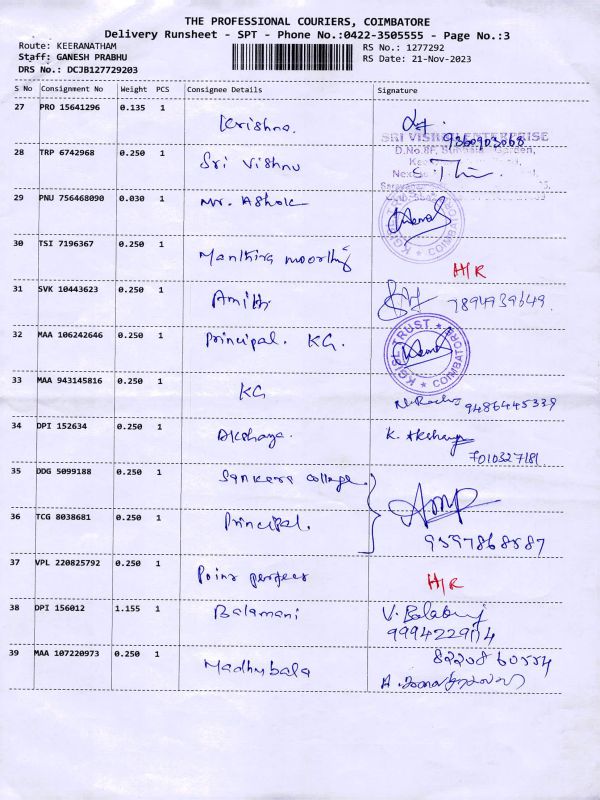 THE PROFESSIONAL COURIERS, COIMBATORE
Delivery Runsheet - SPT - Phone No.:0422-3505555 - Page No.:3
Route: KEERANATHAM
RS No.: 1277292
Staff: GANESH PRABHU
RS Date: 21-Nov-2023
DRS No.: DCJB127729203
S No Consignment No Weight PCS Consignee Details Signature
27 PRO 15641296 0.135 1 Krishna.
9360903068
SRI VISHNU ENTERPRISE
28 TRP 6742968 0.250 1 Sri Vishnu
29 PNU 756468090 0.030 1 Mr. Ashok
KGISL TRUST COIMBATORE
30 TSI 7196367 0.250 1 Manthira moorthy H/R
31 SVK 10443623 0.250 1 Amith
7894939649.
32 MAA 106242646 0.250 1 Principal. KG.
KGISL TRUST ★ COIMBATORE ★
33 MAA 943145816 0.250 1 KG
9486445339
34 DPI 152634 0.250 1 Akshaya. K. Akshaya
7010327181
35 DDG 5099188 0.250 1 Sankara college
36 TCG 8038681 0.250 1 Principal.
9597868587
37 VPL 220825792 0.250 1 Poinr perfect H/R
38 DPI 156012 1.155 1 Balamani V. Balabuj
9994229114
39 MAA 107220973 0.250 1 Madhubala 8220860554